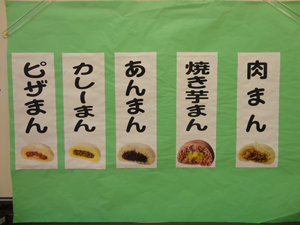 肉まん
焼き芋まん
あんまん
カレーまん
ピザまん